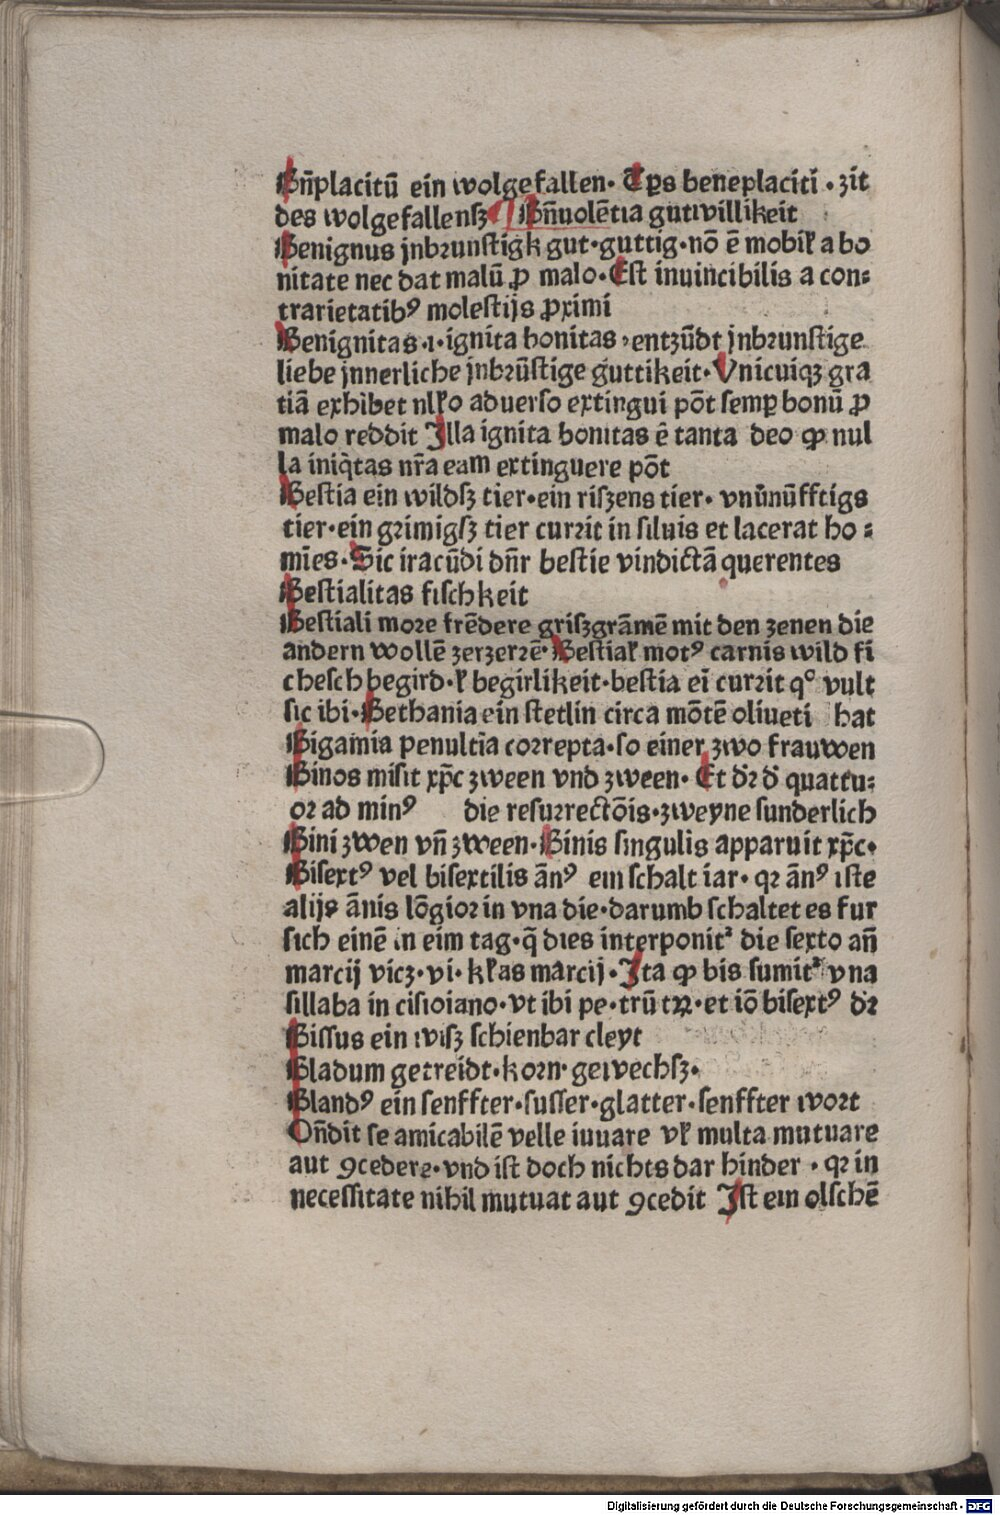 Bn̄placitū ein wolgefallen· Tp̱s beneplaciti · zit
des wolgefallensz ¶ Bn̄uolētia gutwillikeit
Benignus jnbrunstigk gut·guttig·nō ē mobil̄ a bo
nitate nec dat malū ꝓ malo·Est inuincibilis a con⸗
trarietatibꝰ molestijs ꝓximi
Benignitas·i·ignita bonitas·entzūdt jnbrunstige
liebe jnnerliche jnbrūstige guttikeit·Vnicuiqꝫ gra
tiā exhibet nlło aduerso extingui pōt semꝑ bonū ꝓ
malo reddit Illa ignita bonitas ē tanta deo ꝙ nul
la iniq̄tas nr̄a eam extinguere pōt
Bestia ein wildsz tier·ein riszens tier· vnu̇nu̇fftigs
tier·ein grimigsz tier currit in siluis et lacerat ho⸗
mīes·Sic iracūdi dn̄r bestie vindictā querentes
Bestialitas fischkeit
Bestiali more frēdere griszgrāmē mit den zenen die
andern wollē zerzerrē·Bestial̄ motꝰ carnis wild fi
chesch begird·ł begirlikeit·bestia ei currit qͦ vult
sic ibi·Bethania ein stetlin circa mōtē oliueti hat
Bigamia penultīa correpta·so einer zwo frauwen
Binos misit xp̄c zween vnd zween· Et dꝛ dʼ quattu⸗
or ad minꝰ die resurrectōis·zweyne sunderlich
Bini zwen vn̄ zween·Binis singulis apparuit xp̄c·
Bisextꝰ vel bisextilis ānꝰ ein schalt iar· qꝛ ānꝰ iste
alijs ānis lōgior in vna die·darumb schaltet es fur
sich einē in eim tag·q̄ dies interponitᷣ die sexto an̄
marcij vicꝫ·vi·kl̄as marcij·Ita ꝙ bis sumitᷣ vna
sillaba in cisioiano·vt ibi pe·trū tꝝ·et iō bisextꝰ dꝛ
Bissus ein wisz schienbar cleyt
Bladum getreidt·korn·gewechsz·
Blandꝰ ein senffter·susser·glatter·senffter wort
On̄dit se amicabilē velle iuuare vł multa mutuare
aut ꝯcedere·vnd ist doch nichts dar hinder · qꝛ in
necessitate nihil mutuat aut ꝯcedit Ist ein olschē
Digitalisierung gefördert durch die Deutsche Forschungsgemeinschaft · DFG